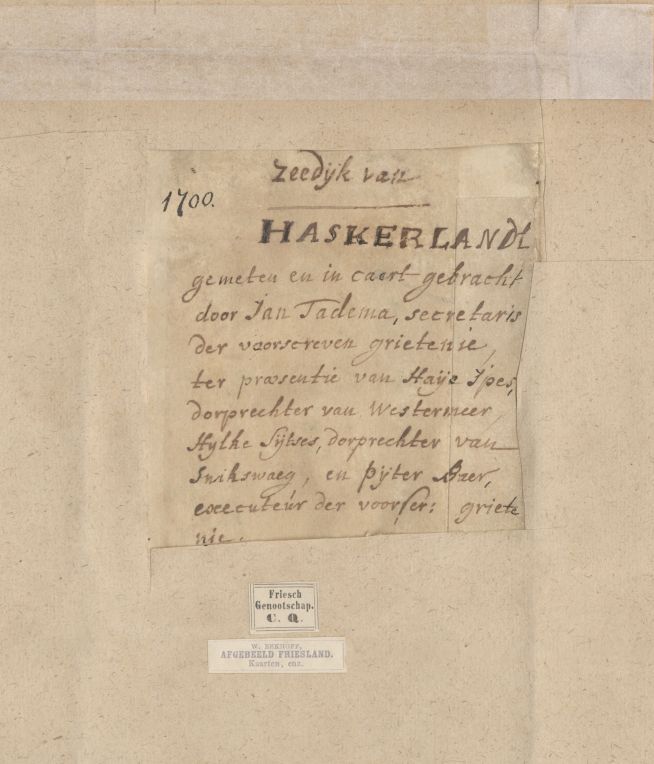 zeedijk van
1700.
HASKERLANDt
gemeten en in caert gebracht
door Jan Tadema, secretaris
der voorscreven grietenie,
ter præsentie van Haije Ipes,
dorprechter van Westermeer,
Hylke Sijtses, dorprechter van
Snikswaeg, en Pijter Baer,
executeúr der voorscr: griete
nie.
Friesch
Genootschap.
C. Q.
W. EEKHOFF,
AFGEBEELD FRIESLAND.
Kaarten, enz.